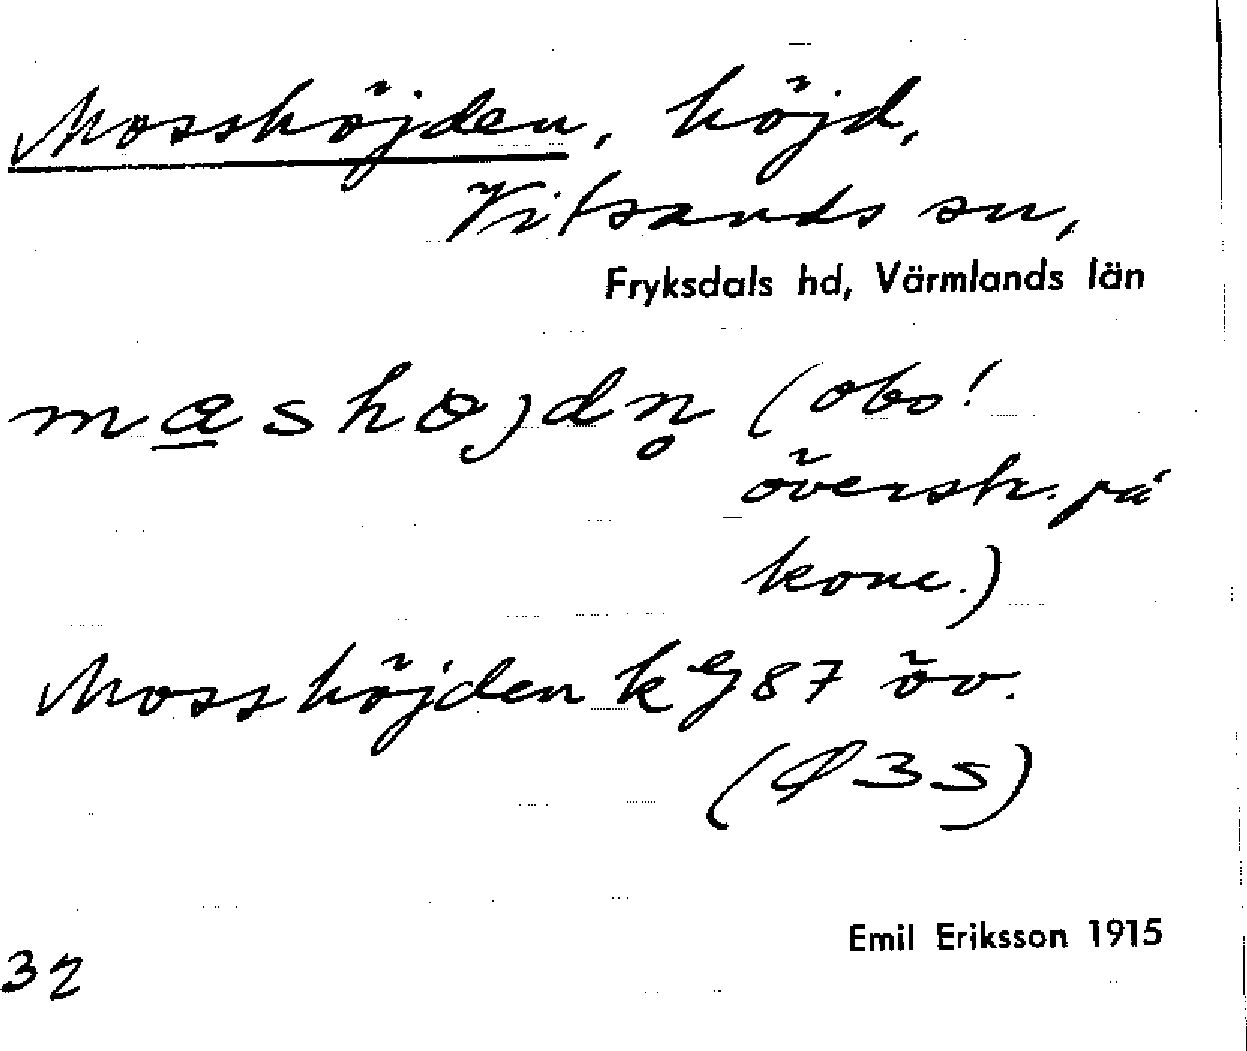 Mosshöjden, höjd,
Vitsands sn,
Fryksdals hd, Värmlands län
mashojdn (obs!
överstr. på
konc.)
Mosshöjden k 87 öv.
Emil Eriksson 1915
32